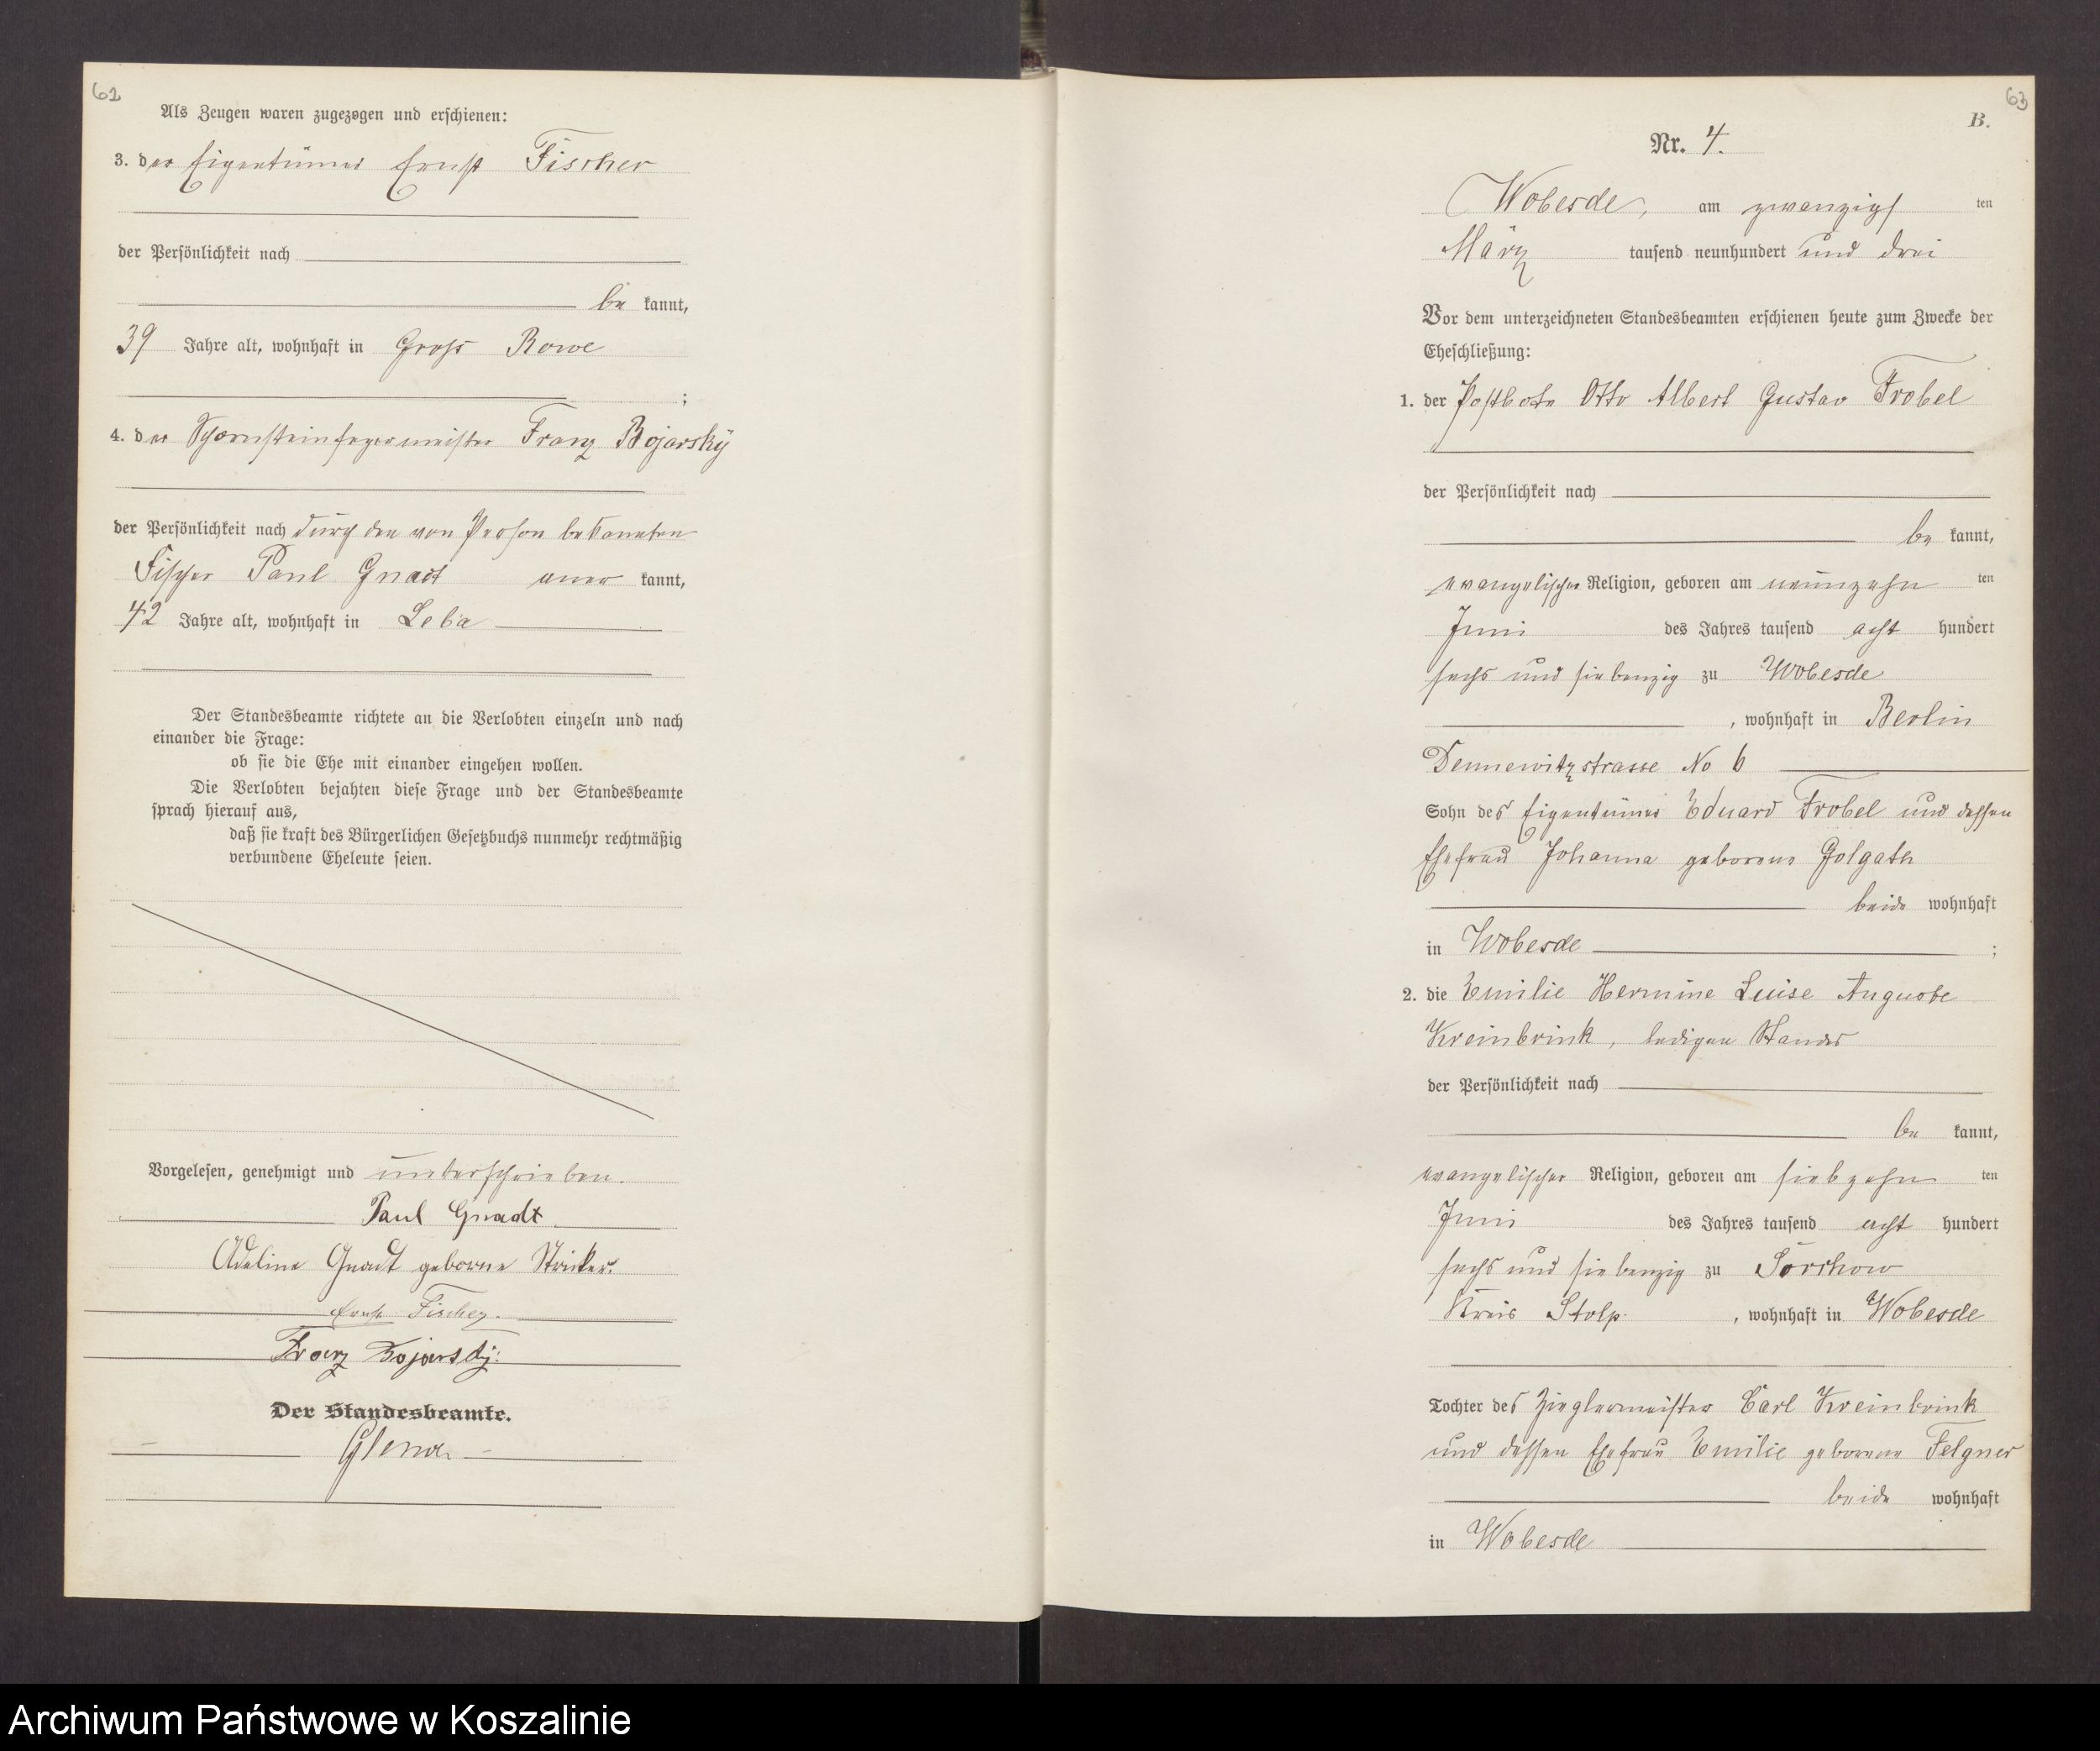 62
Als Zeugen waren zugezogen und erschienen:
3. der Eigentümer Ernst Fischer
der Persönlichkeit nach
be kannt,
39 Jahre alt, wohnhaft in Gross Rowe
;
4. der Schornsteinfegermeister Franz Bojarsky
der Persönlichkeit nach durch den von Person bekannten
Fischer Paul Gnadt aner kannt,
42 Jahre alt, wohnhaft in Leba
Der Standesbeamte richtete an die Verlobten einzeln und nach
einander die Frage:
ob sie die Ehe mit einander eingehen wollen.
Die Verlobten bejahten diese Frage und der Standesbeamte
sprach hierauf aus,
daß sie kraft des Bürgerlichen Gesetzbuchs nunmehr rechtmäßig
verbundene Eheleute seien.
Vorgelesen, genehmigt und unterschrieben.
Paul Gnadt
Adeline Gnadt geborne Stricker.
Ernst Fischer.
Franz Bojarsky.
Der Standesbeamte.
63
B.
Nr. 4.
Wobesde, am zwanzigsten
März tausend neunhundert und drei
Vor dem unterzeichneten Standesbeamten erschienen heute zum Zwecke der
Eheschließung:
1. der Postbote Otto Albert Gustav Frobel
der Persönlichkeit nach
be kannt,
evangelischer Religion, geboren am neunzehn ten
Juni des Jahres tausend acht hundert
sechs und siebenzig zu Wobesde
, wohnhaft in Berlin
Dennewitzstrasse No 6
Sohn des Eigentümers Eduard Frobel und dessen
Ehefrau Johanna geborene Golgath
beide wohnhaft
in Wobesde ;
2. die Emilie Hermine Luise Auguste
Kreinbrink, ledigen Standes
der Persönlichkeit nach
be kannt,
evangelischer Religion, geboren am siebzehn ten
Juni des Jahres tausend acht hundert
sechs und siebenzig zu Sorchow
Kreis Stolp , wohnhaft in Wobesde
Tochter des Zieglermeister Carl Kreinbrink
und dessen Ehefrau Emilie geborene Felgner
beide wohnhaft
in Wobesde
Archiwum Państwowe w Koszalinie